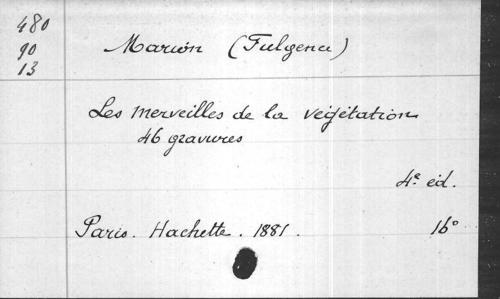 480
90
13
Marion (Fulgence)
Les merveilles de la végétation
46 gravures
4e éd.
Paris. Hachette. 1881. 16°